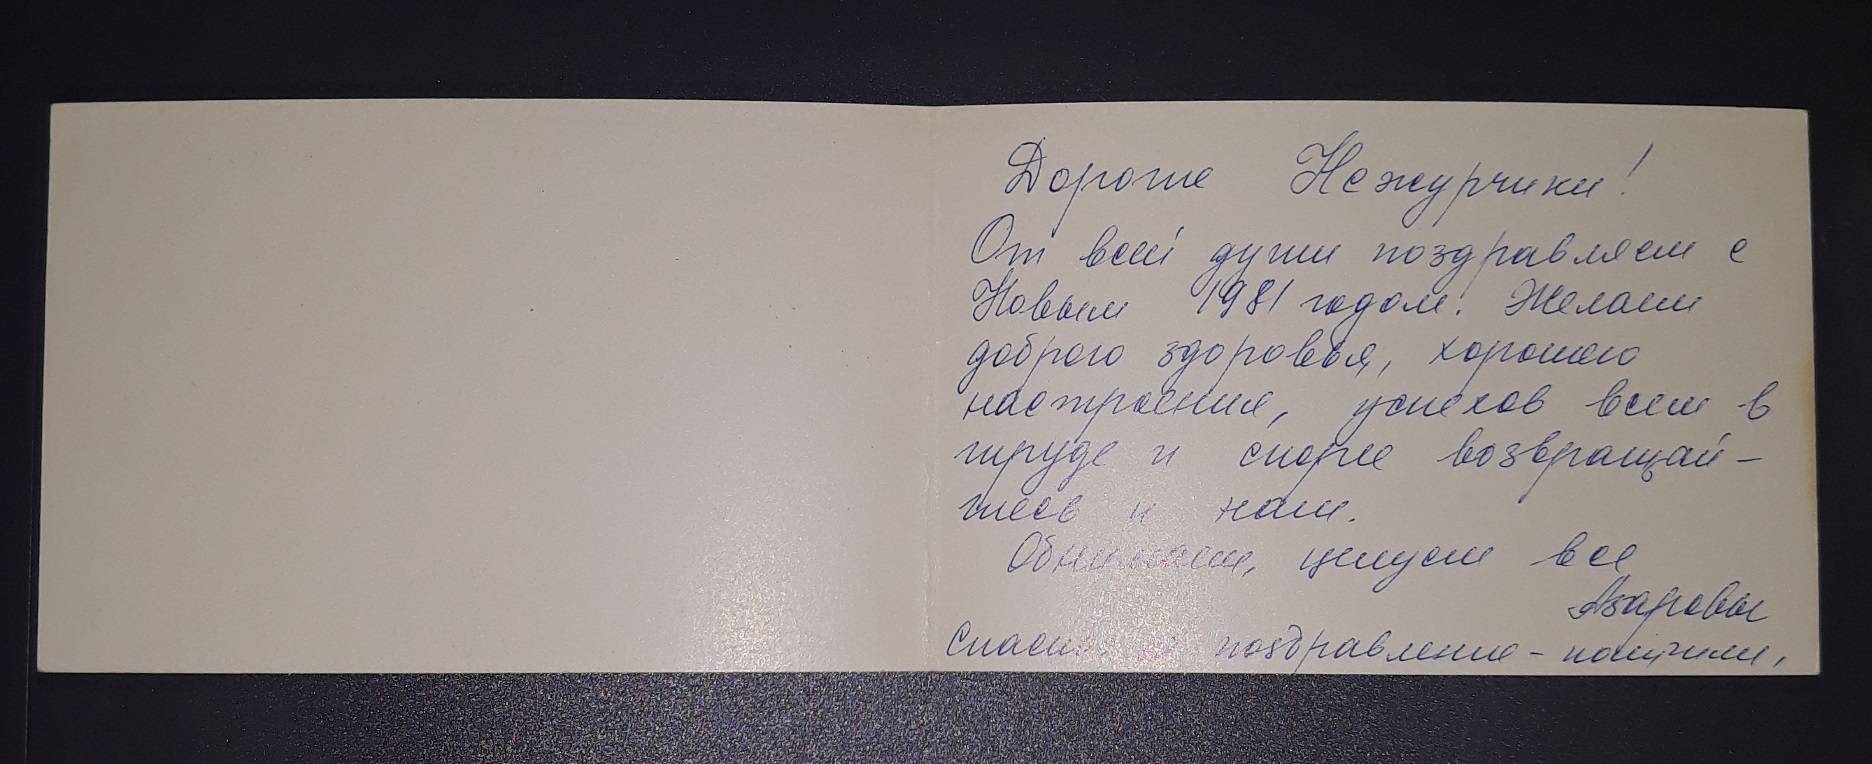 Дорогие Нежурчики!
От всей души поздравляем с
Новым 1981 годом! Желаем
доброго здоровья, хорошего
настроения, успехов всем в
труде и скорее возвращай-
тесь к нам.
Обнимаем, целуем все
Азаровы
Спасибо за поздравление - получили.